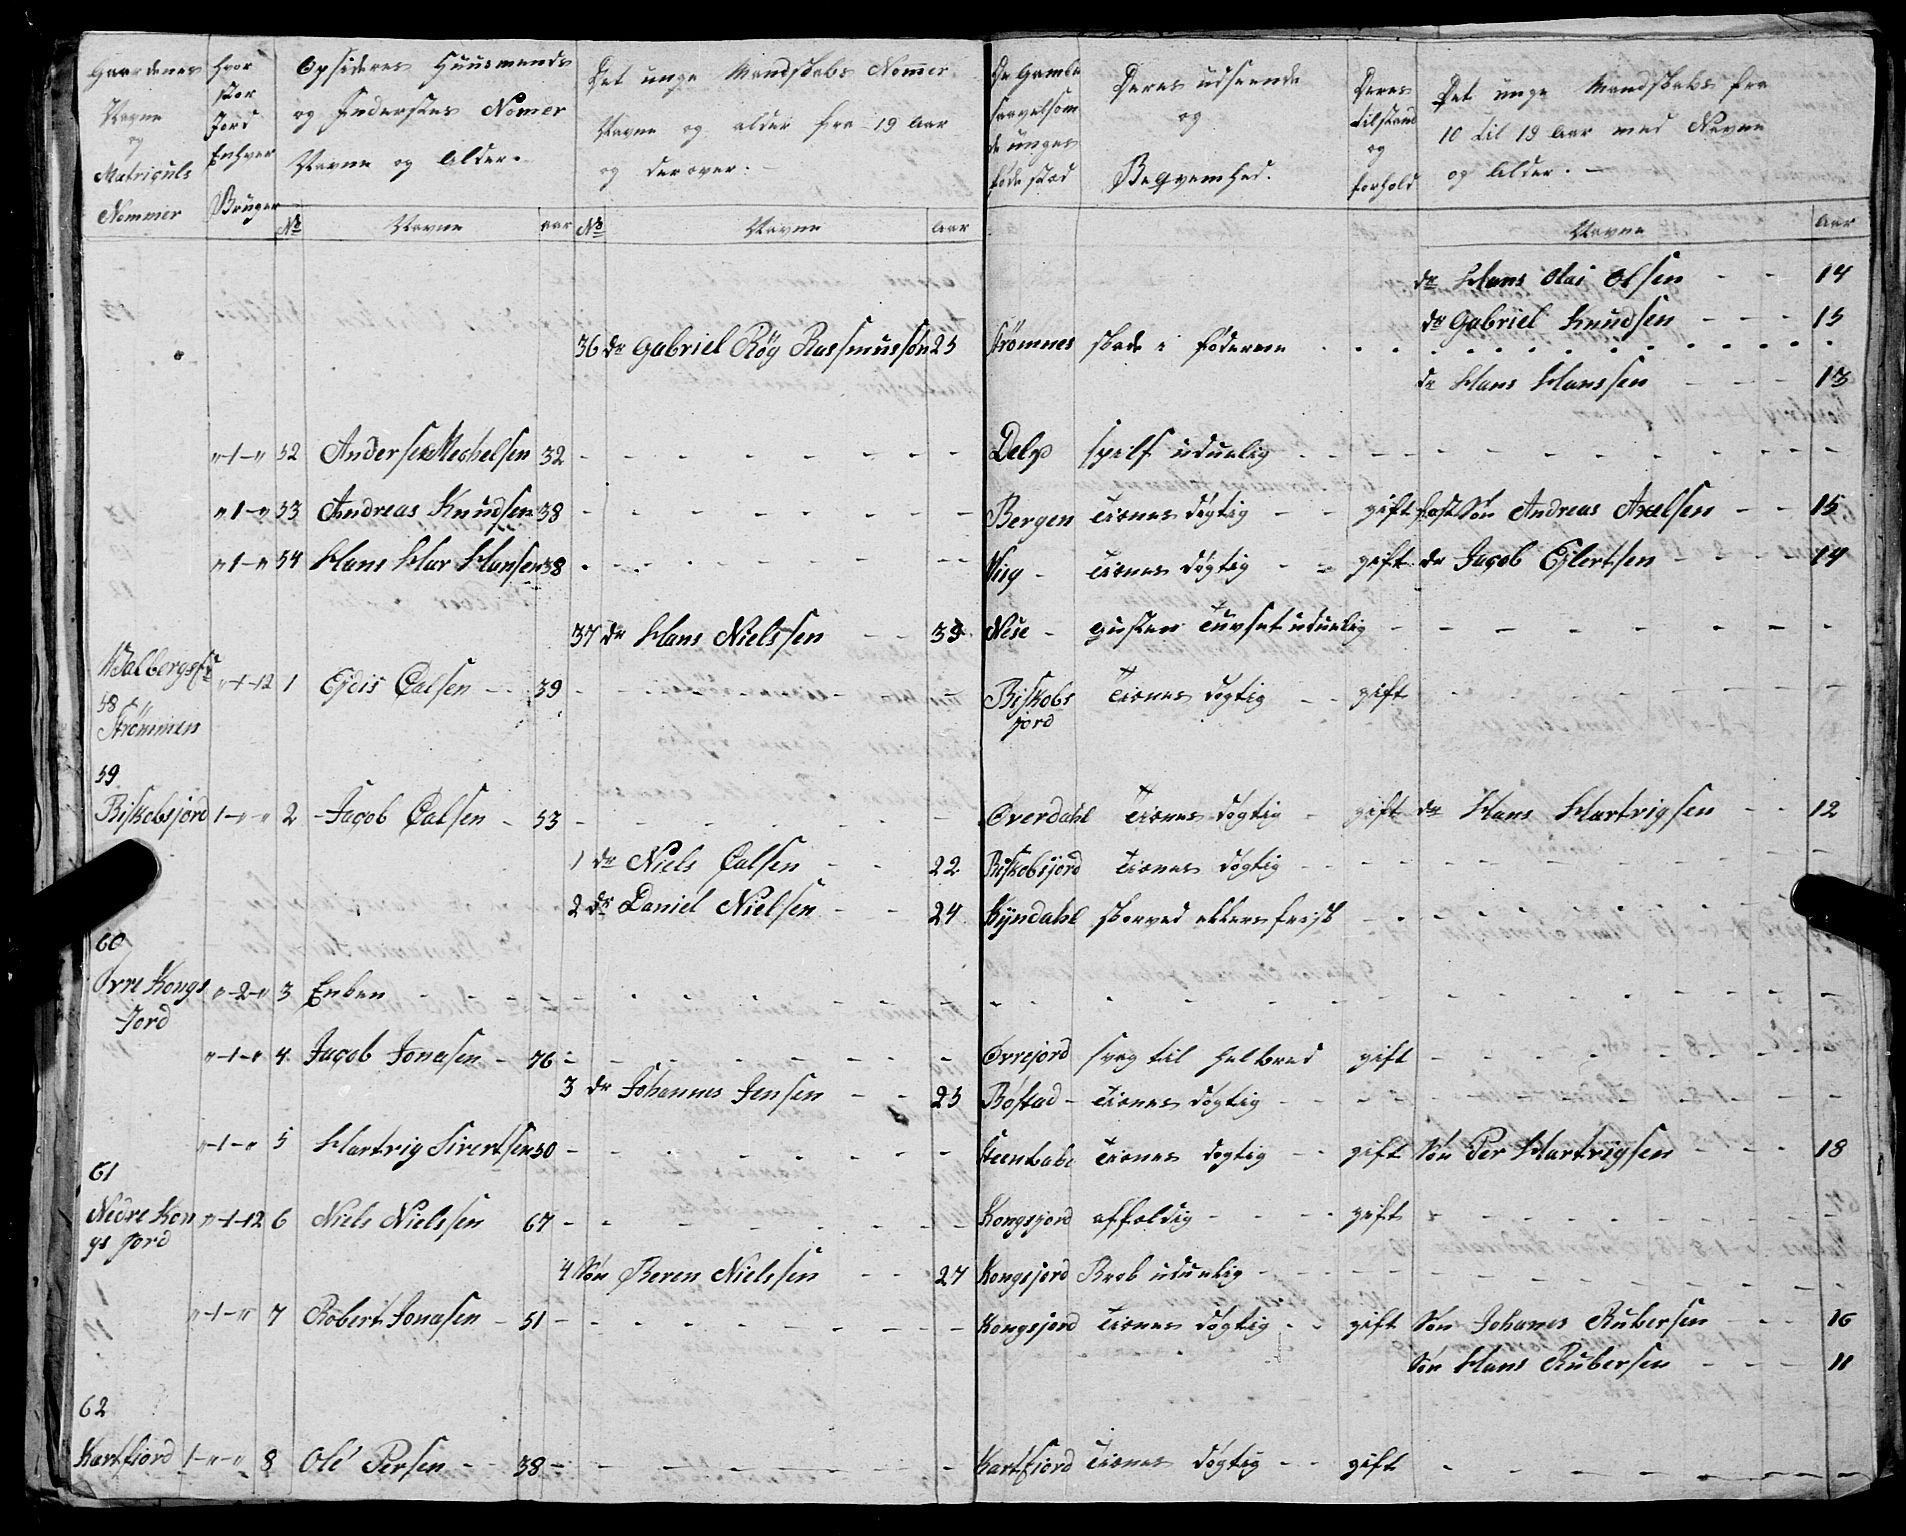 Gaardenes Navne og Matriculs Nommer
Hvor stor Jord Enhver Bruger
Opsideres Huusmends og Inderstes Nomer Navne og Alder.
Det unge Mandskabs Nommer Navne og alder fra 19 Aar og derover.
De Gamle saavelsom de unges føde stæd
Deres udseende og Beqvemhed.
Deres tilstand og forhold
Det unge Mandskabs fra 10 til 19 Aar med Navne og Alder.
No Navne aar No Navne Aar Navne Aar
do Hans Olai Olsen 14
do Gabriel Knudsen 15
36 do Gabriel Røg Rasmussøn 25 Strømnes skade i fødderne
do Hans Hanssen 13
"-1-" 52 Andersen Mechelsen 32 uduelig
"-1-" 53 Andreas Knudsen 38 Bergen Tienes døgtig gift Søn Andreas Axelsen 15
"-1-" 54 Hans Har Hansen 38 Tienes døgtig gift do Jacob Ejlertsen 14
37 do Hans Nielssen 33 Nese uduelig
58 Strømmen "-1-12 1 Ejdis Calsen 39 Biskobs jord Tienes døgtig gift
59
Biskobsjord 1-"-" 2 Jacob Calsen 53 Overdahl Tienes døgtig gift do Hans Hartvigsen 12
1 do Niels Calsen 22 Biskobsjord Tienes døgtig
2 do Daniel Nielsen 24 Kyndahl skorved ellers frisk
60
Øvre Kongs Jord "-2-" 3 Enken
"-1-" 4 Jacob Jonasen 76 Øvrejord svag til Helbred gift
3 do Johannes Jensen 25 Bøstad Tienes døgtig
"-1-" 5 Hartvig Sivertsen 50 Tienes døgtig gift Søn Per Hartvigsen 18
61
Nedre Kongs jord "-1-12 6 Niels Nielssen 67 Kongsjord affældig gift
4 Søn Beren Nielssen 27 Kongsjord Brok uduelig
"-1-" 7 Robert Jonasen 51 Kongsjord Tienes døgtig gift Søn Johanes Rubersen 16
Søn Hans Rubersen 11
62
Kartfiord 1-"-" 8 Ole Persen 38 Kartfiord Tienes døgtig gift